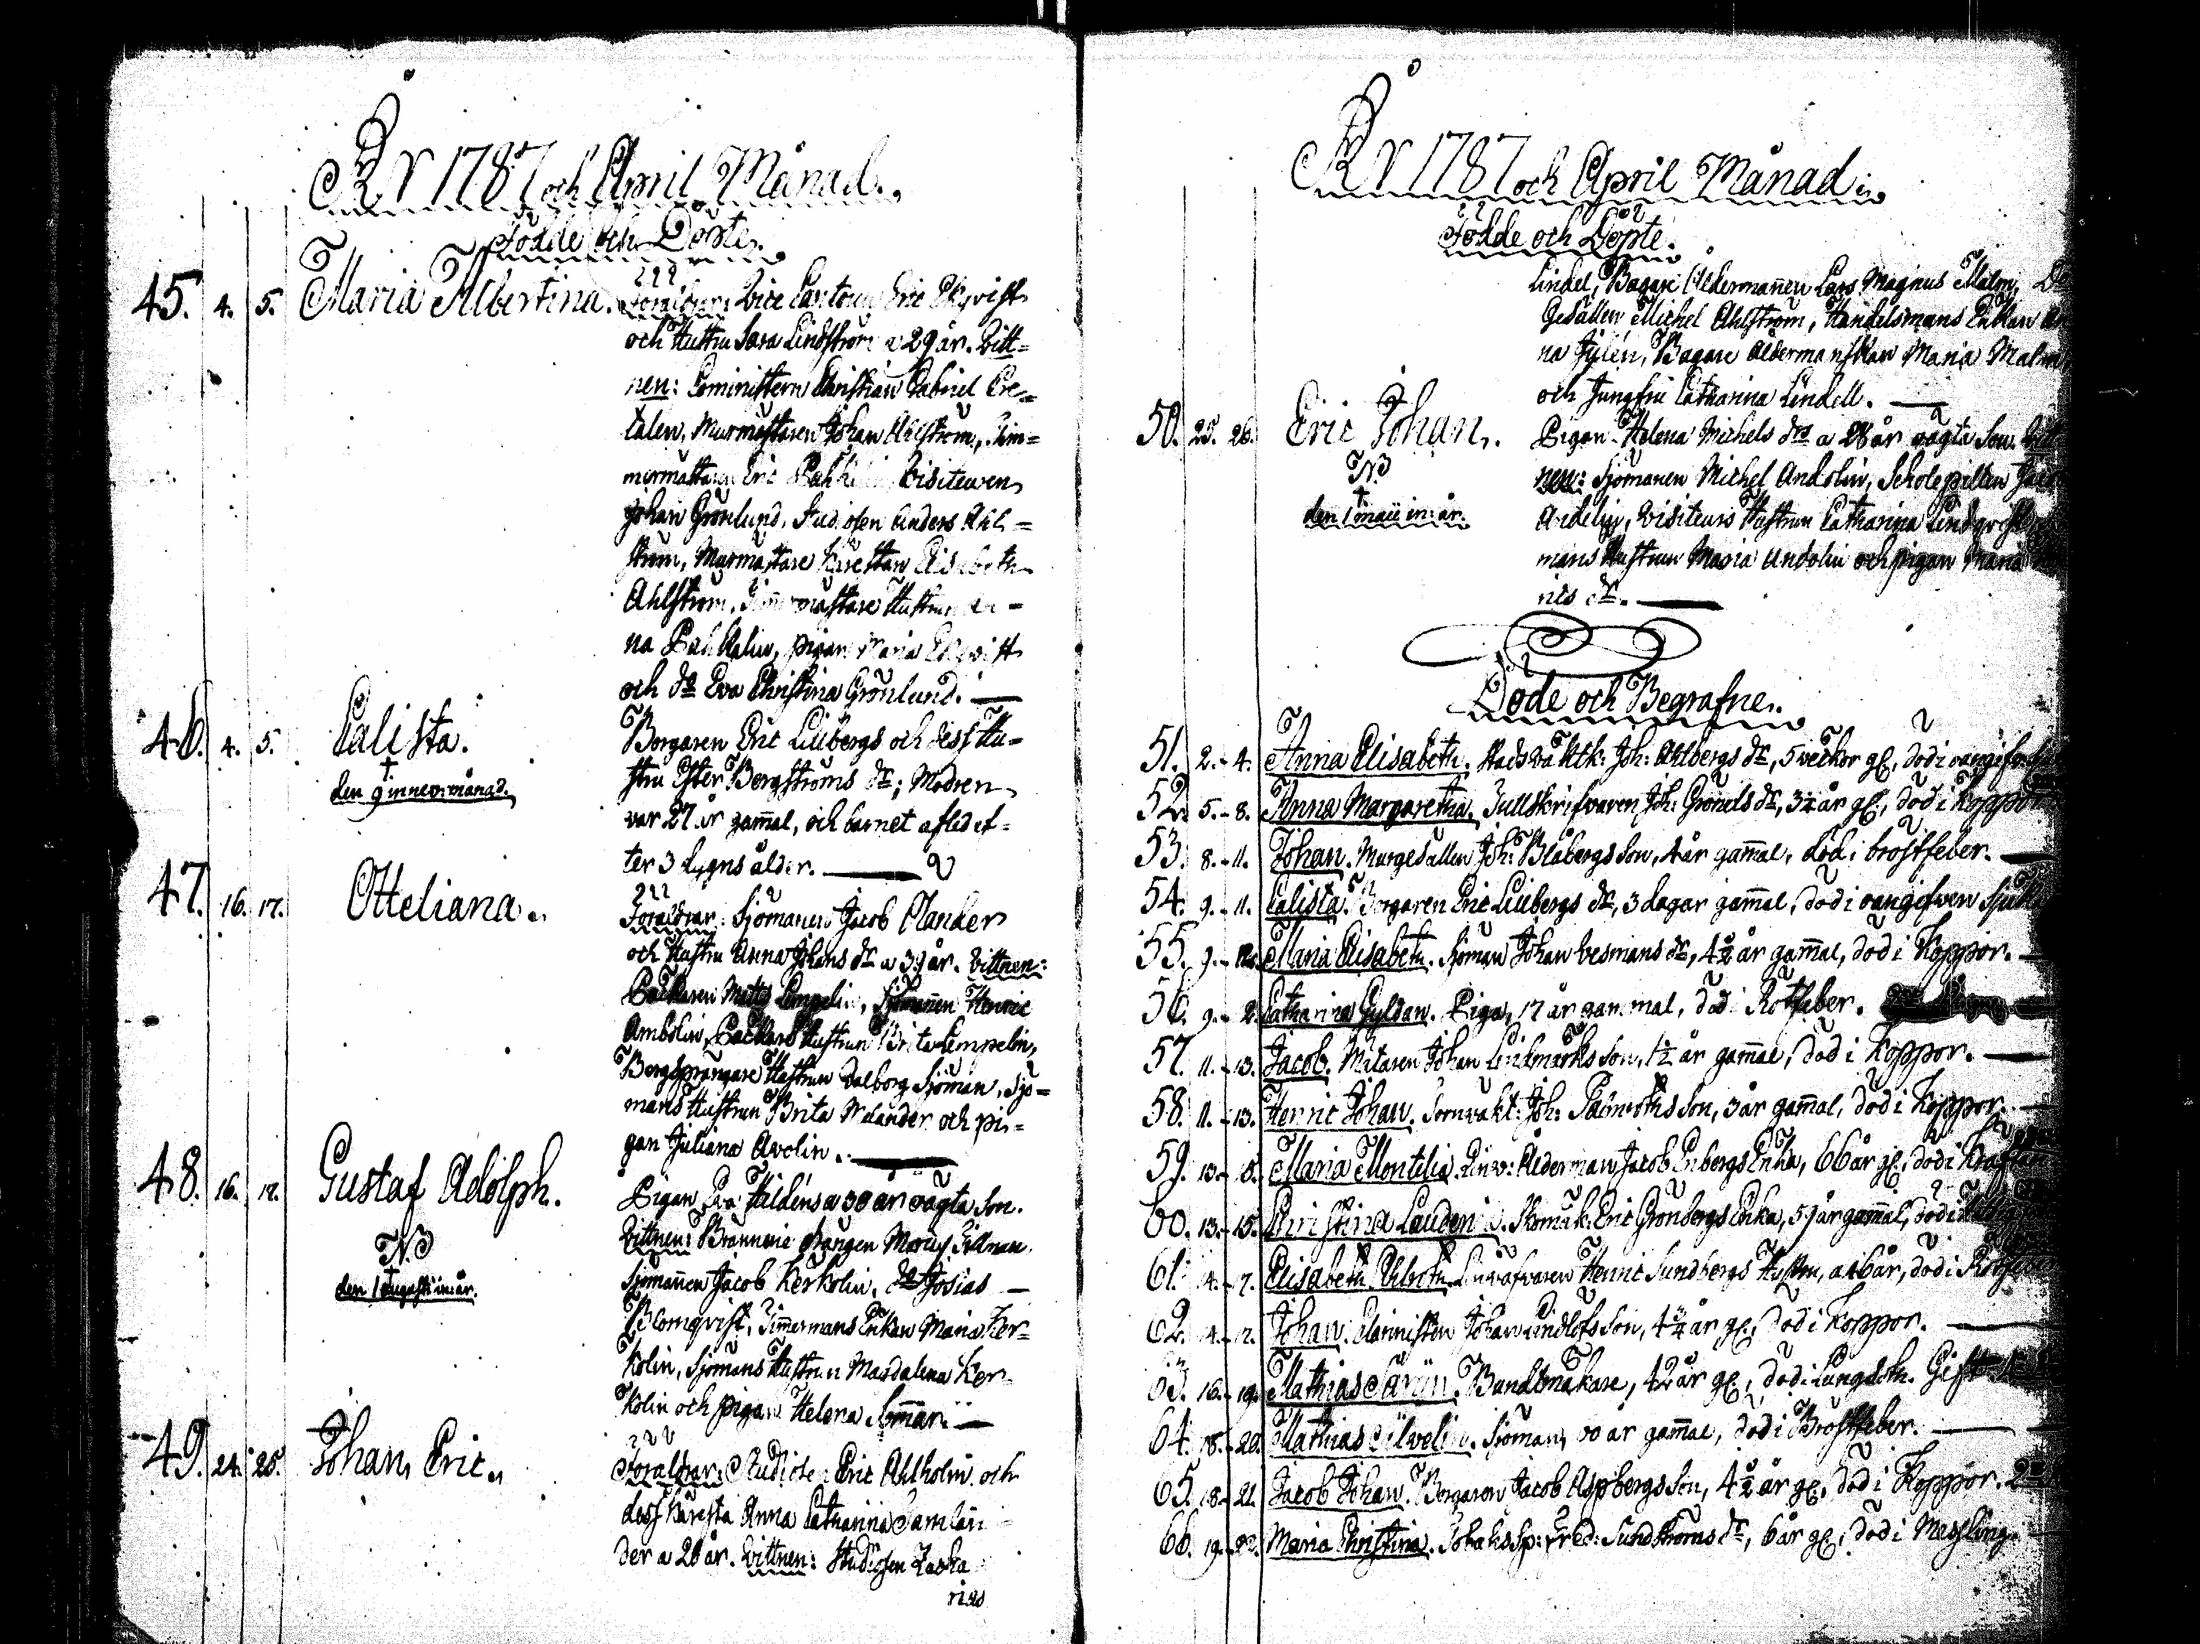 År 1787 och April Månad.
Födde och Döpte.
45. 4. 5. Maria Albertina. Föräldrar: Vice Eric Ekqvist
och Hustru Sara Lindström a 29 år. Witt=
nen: Comministern Christian Gabriel Cre=
talen, Murmästaren Johan Ahlström, Tim=
mermästaren Eric Visiteuren
Johan Grönlund, Studiosen Anders Ahl=
ström, Murmästare Elisabeth
Ahlström, Timmermästare Hustrun
na pigan Maria Ekqvist
och do Eva Christina Grönlund.
46. 4. 5. Calista. Borgaren Eric Liibergs och dess Hu=
† stru Ester Bergströms dr; Modren
den 9 innev: månad. var 27 år gammal, och barnet afled ef=
ter 3 dygns ålder.
47. 16. 17. Otteliana. Föräldrar: Sjömannen Jacob Olander
och Hustru Anna Johans dr a 39 år. Vittnen:
Backaren Matts Lempelin, Sjömannen Henric
Ambolin, Backars Hustrun Brita Lempelin,
Bergsprängare Hustrun Valborg Sjöman, Sjö=
mans Hustrun Brita Welander och pi=
gan Juliana Avolin.
48. 16. 17. Gustaf Adolph. Pigan Eva Hildens a 30 år oägta Son.
NB Vittnen: Brännerie drängen Tillman,
† Sjömannen Jacob Kerkolin, do Josias
den 1 Augusti in: år. Blomqvist, Timmermans Enkan Maria Ker=
kolin, Sjömans Hustrun Magdalena Ker=
kolin och pigan Helena
49. 24. 25. Johan Eric. Föräldrar: Studiosen Eric Ahlholm och
dess Käresta Anna Catharina
der a 20 år. Vittnen: Studiosen Zacha
rias
År 1787 och April Månad
Födde och Döpte.
Lindel, Bagare Åldermannen Lars Magnus Malm,
Gesällen Michel Ahlström, Handelsmans Enkan
na Bagare Åldermanskan Maria Malm
och Jungfru Catharina Lindell.
50. 25. 26. Eric Johan. Pigan Helena Michels drs a 28 år oägta Son.
NB nen: Sjömannen Michel Andolin, Scholepilten
† Visiteurs Hustrun Catharina Lindqvist
den 1 Maii in: år. mans Hustrun Maria Andolin och pigan Maria
nis dr.
Döde och Begrafne.
51. 2.-4. Anna Elisabeth. Stadsvaktk: Joh: Ahlbergs dr, 5 veckor gl, död i
52. 5.-8. Anna Margaretha. Tullskrifvaren Joh: Grönels dr, år gl, död i Koppor
53. 8.-11. Johan. Murgesällen Joh: Blåbergs Son, 4 år gammal, död i bröstfeber.
54. 9.-11. Calista. Borgaren Eric Liibergs dr, 3 dagar gammal, död i oangifven Sjuk
55. 9.- Maria Elisabeth. Sjöman Johan Vesmans dr, 4½ år gammal, död i Koppor.
56. 9.- Catharina Gyldan. Piga, 17 år gammal, död i Rötfeber.
57. 11.-13. Jacob. Målaren Johan Lindmarks Son, 1½ år gammal, död i Koppor.
58. 11.-13. Henric Johan. Joh: Son, 3 år gammal, död i Koppor.
59. 13.- Maria Montelia. Linv: Ålderman Jacob Enbergs Enka, 66 år gl, död i
60. 13.-15. Christina Skomak: Eric Grönbergs Enka, 59 år gammal, död i
61. 14.-17. Elisabeth Henric Sundbergs Hustru, a 46 år, död i Rötfeber
62. 14.-17. Johan. Johan Lindlöfs Son, 4¼ år gl, död i Koppor.
63. 16.-19. Mathias Bundtmakare, 42 år gl, död i Lungsoth. Gift
64. 18.-20. Mathias Sjöman, år gammal, död i Bröstfeber.
65. 18.-21. Jacob Johan. Borgaren Jacob Aspbergs Son, 4½ år gl, död i Koppor.
66. 19.-22. Maria Christina. Tobakssp: Fred: Sundströms dr, 6 år gl, död i Messling.